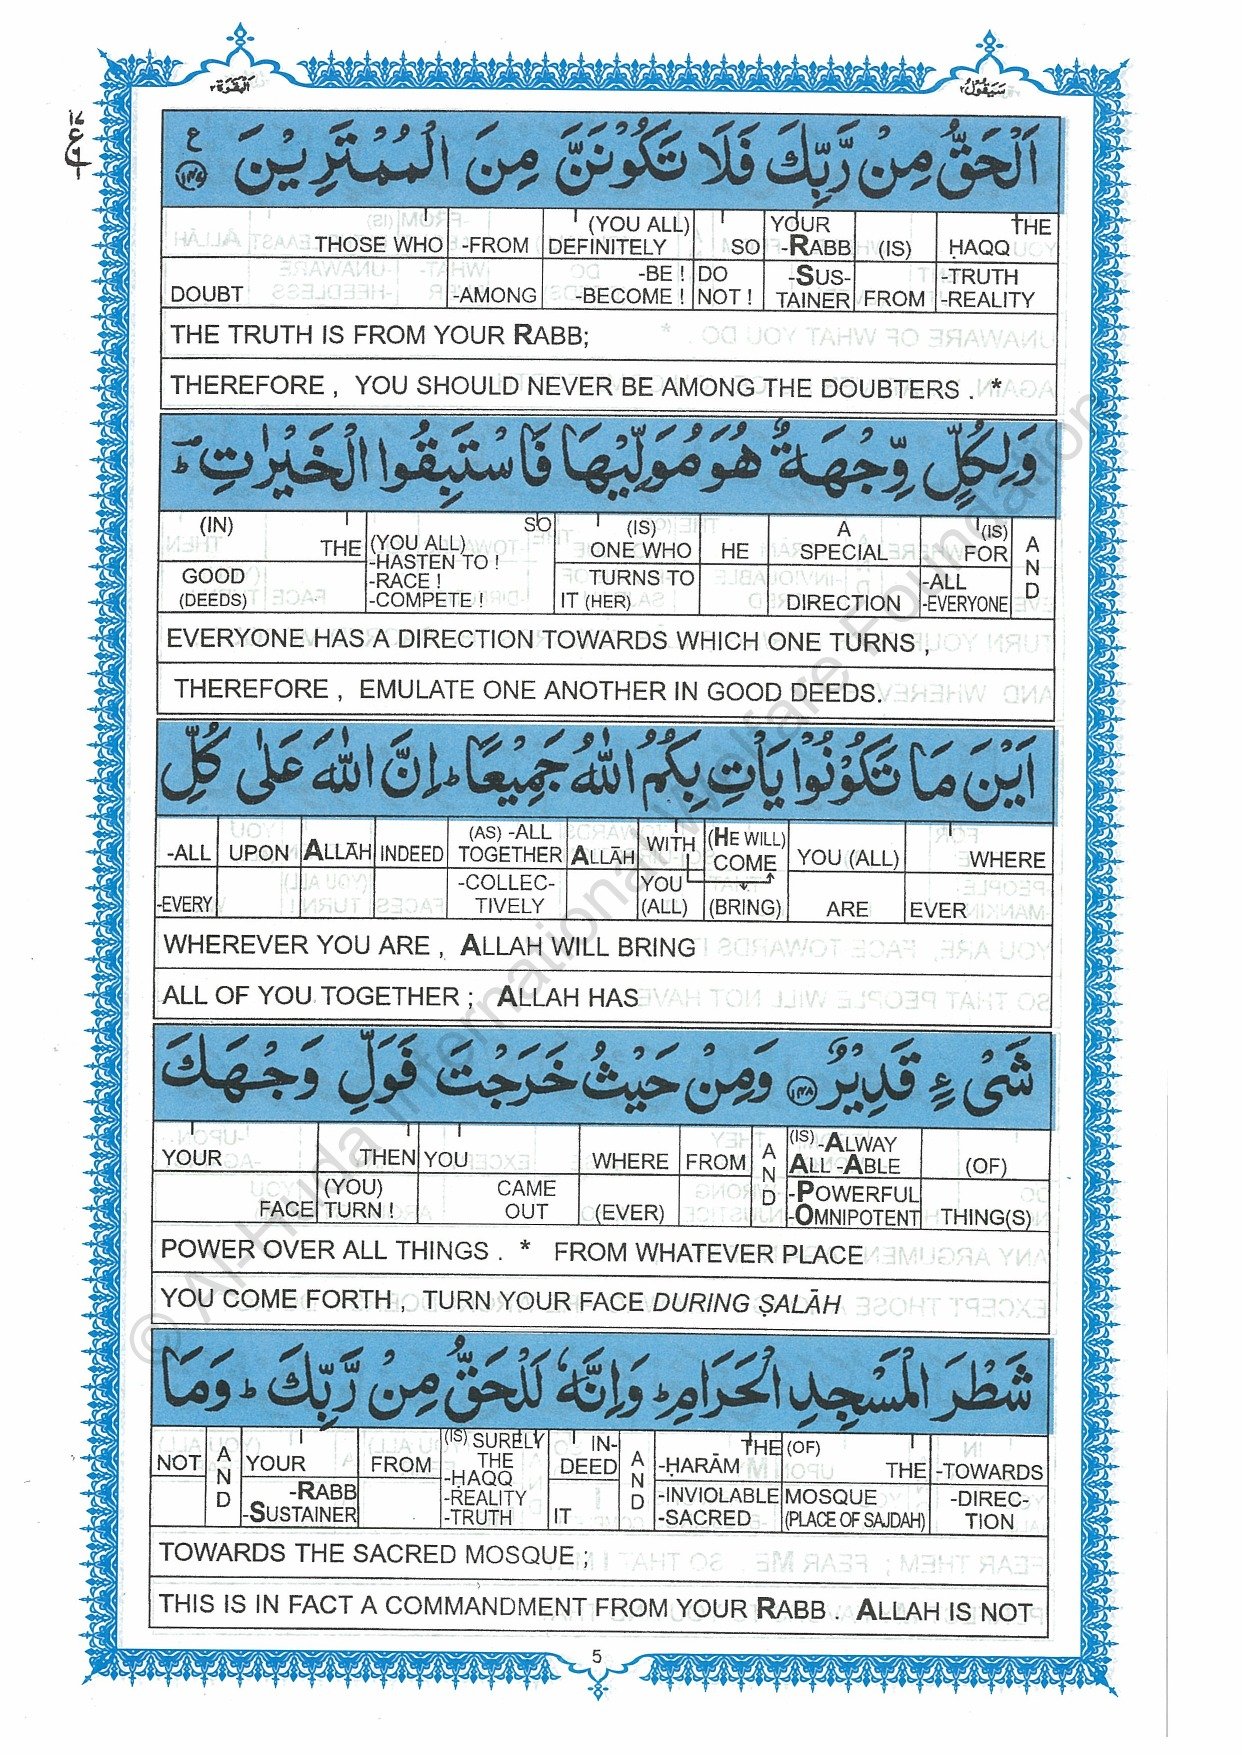 البقرة ٢
سيقول ٢
١٧
ع
١
اَلْحَقُّ مِنْ رَّبِّكَ فَلَا تَكُوْنَنَّ مِنَ الْمُمْتَرِيْنَ ع ١٤٧
THOSE WHO -FROM (YOU ALL) DEFINITELY SO YOUR -RABB (IS) THE ḤAQQ
DOUBT -AMONG -BE ! -BECOME ! DO NOT ! -SUS-TAINER FROM -TRUTH -REALITY
THE TRUTH IS FROM YOUR RABB;
THEREFORE , YOU SHOULD NEVER BE AMONG THE DOUBTERS . *
وَلِكُلٍّ وِّجْهَةٌ هُوَ مُوَلِّيْهَا فَاسْتَبِقُوا الْخَيْرٰتِ ط
(IN) THE SO (YOU ALL) -HASTEN TO ! (IS) ONE WHO HE A SPECIAL (IS) FOR AND
GOOD (DEEDS) -RACE ! -COMPETE ! TURNS TO IT (HER) DIRECTION -ALL -EVERYONE
EVERYONE HAS A DIRECTION TOWARDS WHICH ONE TURNS ,
THEREFORE , EMULATE ONE ANOTHER IN GOOD DEEDS.
اَيْنَ مَا تَكُوْنُوْا يَاْتِ بِكُمُ اللّٰهُ جَمِيْعًا ط اِنَّ اللّٰهَ عَلٰى كُلِّ
-ALL UPON ALLĀH INDEED (AS) -ALL TOGETHER ALLĀH WITH (HE WILL) COME YOU (ALL) WHERE
-EVERY -COLLEC-TIVELY YOU (ALL) (BRING) ARE EVER
WHEREVER YOU ARE , ALLAH WILL BRING
ALL OF YOU TOGETHER ; ALLAH HAS
شَيْءٍ قَدِيْرٌ ١٤٨ وَمِنْ حَيْثُ خَرَجْتَ فَوَلِّ وَجْهَكَ
YOUR THEN YOU WHERE FROM AND (IS) -ALWAY ALL -ABLE (OF)
FACE (YOU) TURN ! CAME OUT (EVER) -POWERFUL -OMNIPOTENT THING(S)
POWER OVER ALL THINGS . * FROM WHATEVER PLACE
YOU COME FORTH , TURN YOUR FACE DURING ṢALĀH
شَطْرَ الْمَسْجِدِ الْحَرَامِ ط وَاِنَّهٗ لَلْحَقُّ مِنْ رَّبِّكَ ط وَمَا
NOT AND YOUR FROM (IS) SURELY THE -ḤAQQ IN-DEED AND THE -ḤARĀM (OF) THE -TOWARDS
-RABB -SUSTAINER -REALITY -TRUTH IT -INVIOLABLE -SACRED MOSQUE (PLACE OF SAJDAH) -DIREC-TION
TOWARDS THE SACRED MOSQUE ;
THIS IS IN FACT A COMMANDMENT FROM YOUR RABB . ALLAH IS NOT
5
© Al-Huda International Welfare Foundation